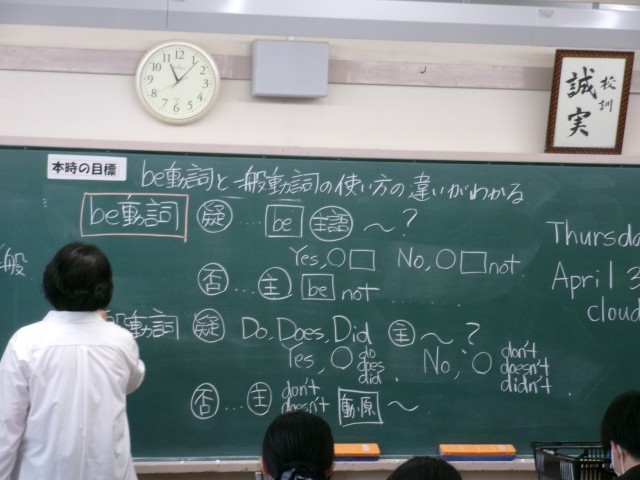 校訓
誠実
本時の目標
be動詞と一般動詞の使い方の違いがわかる
be動詞 疑 … be 主語 〜?
Yes, ○□ No, ○□not.
否 … 主 be not
般動詞 疑 Do, Does, Did 主 〜?
Yes, ○ do does did. No, ○ don't doesn't didn't.
否 … 主 don't doesn't 動・原 〜
般
Thursda
April 3
cloud
12 1 2 3 4 5 6 7 8 9 10 11